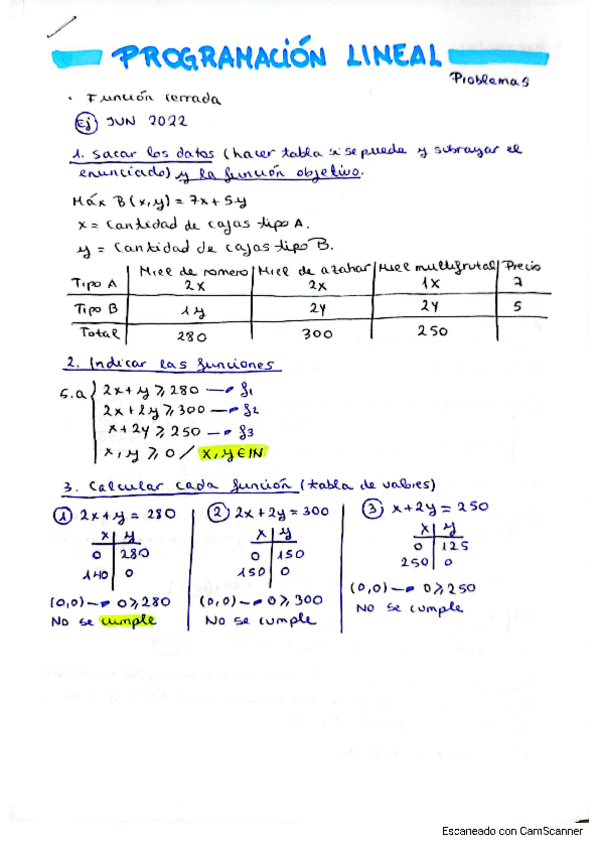 PROGRAMACIÓN LINEAL
Problemas
· Función cerrada
Ej JUN 2022
1. Sacar los datos (hacer tabla si se puede y subrayar el
enunciado) y la función objetivo.
Máx B(x,y) = 7x + 5y
x = Cantidad de cajas tipo A.
y = Cantidad de cajas tipo B.
Miel de romero | Miel de azahar | Miel multifrutal | Precio
Tipo A | 2x | 2x | 1x | 7
Tipo B | 1y | 2y | 2y | 5
Total | 280 | 300 | 250
2. Indicar las funciones
s.a { 2x + y ⩾ 280 → f1
2x + 2y ⩾ 300 → f2
x + 2y ⩾ 250 → f3
x, y ⩾ 0 / x, y ∈ IN
3. Calcular cada función (tabla de valores)
① 2x + y = 280
x | y
0 | 280
140 | 0
(0,0) → 0 ⩾ 280
No se cumple
② 2x + 2y = 300
x | y
0 | 150
150 | 0
(0,0) → 0 ⩾ 300
No se cumple
③ x + 2y = 250
x | y
0 | 125
250 | 0
(0,0) → 0 ⩾ 250
No se cumple
Escaneado con CamScanner